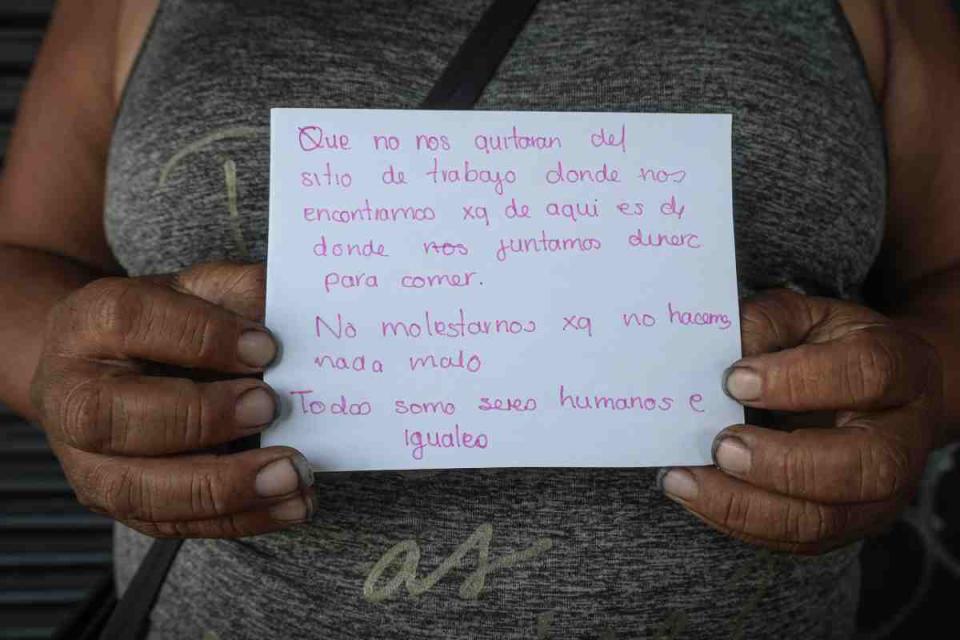 Que no nos quitaran del
sitio de trabajo donde nos
encontramos xq de aqui es de
donde nos juntamos dinero
para comer.
No molestarnos xq no hacemos
nada malo
Todos somo seres humanos e
iguales
as